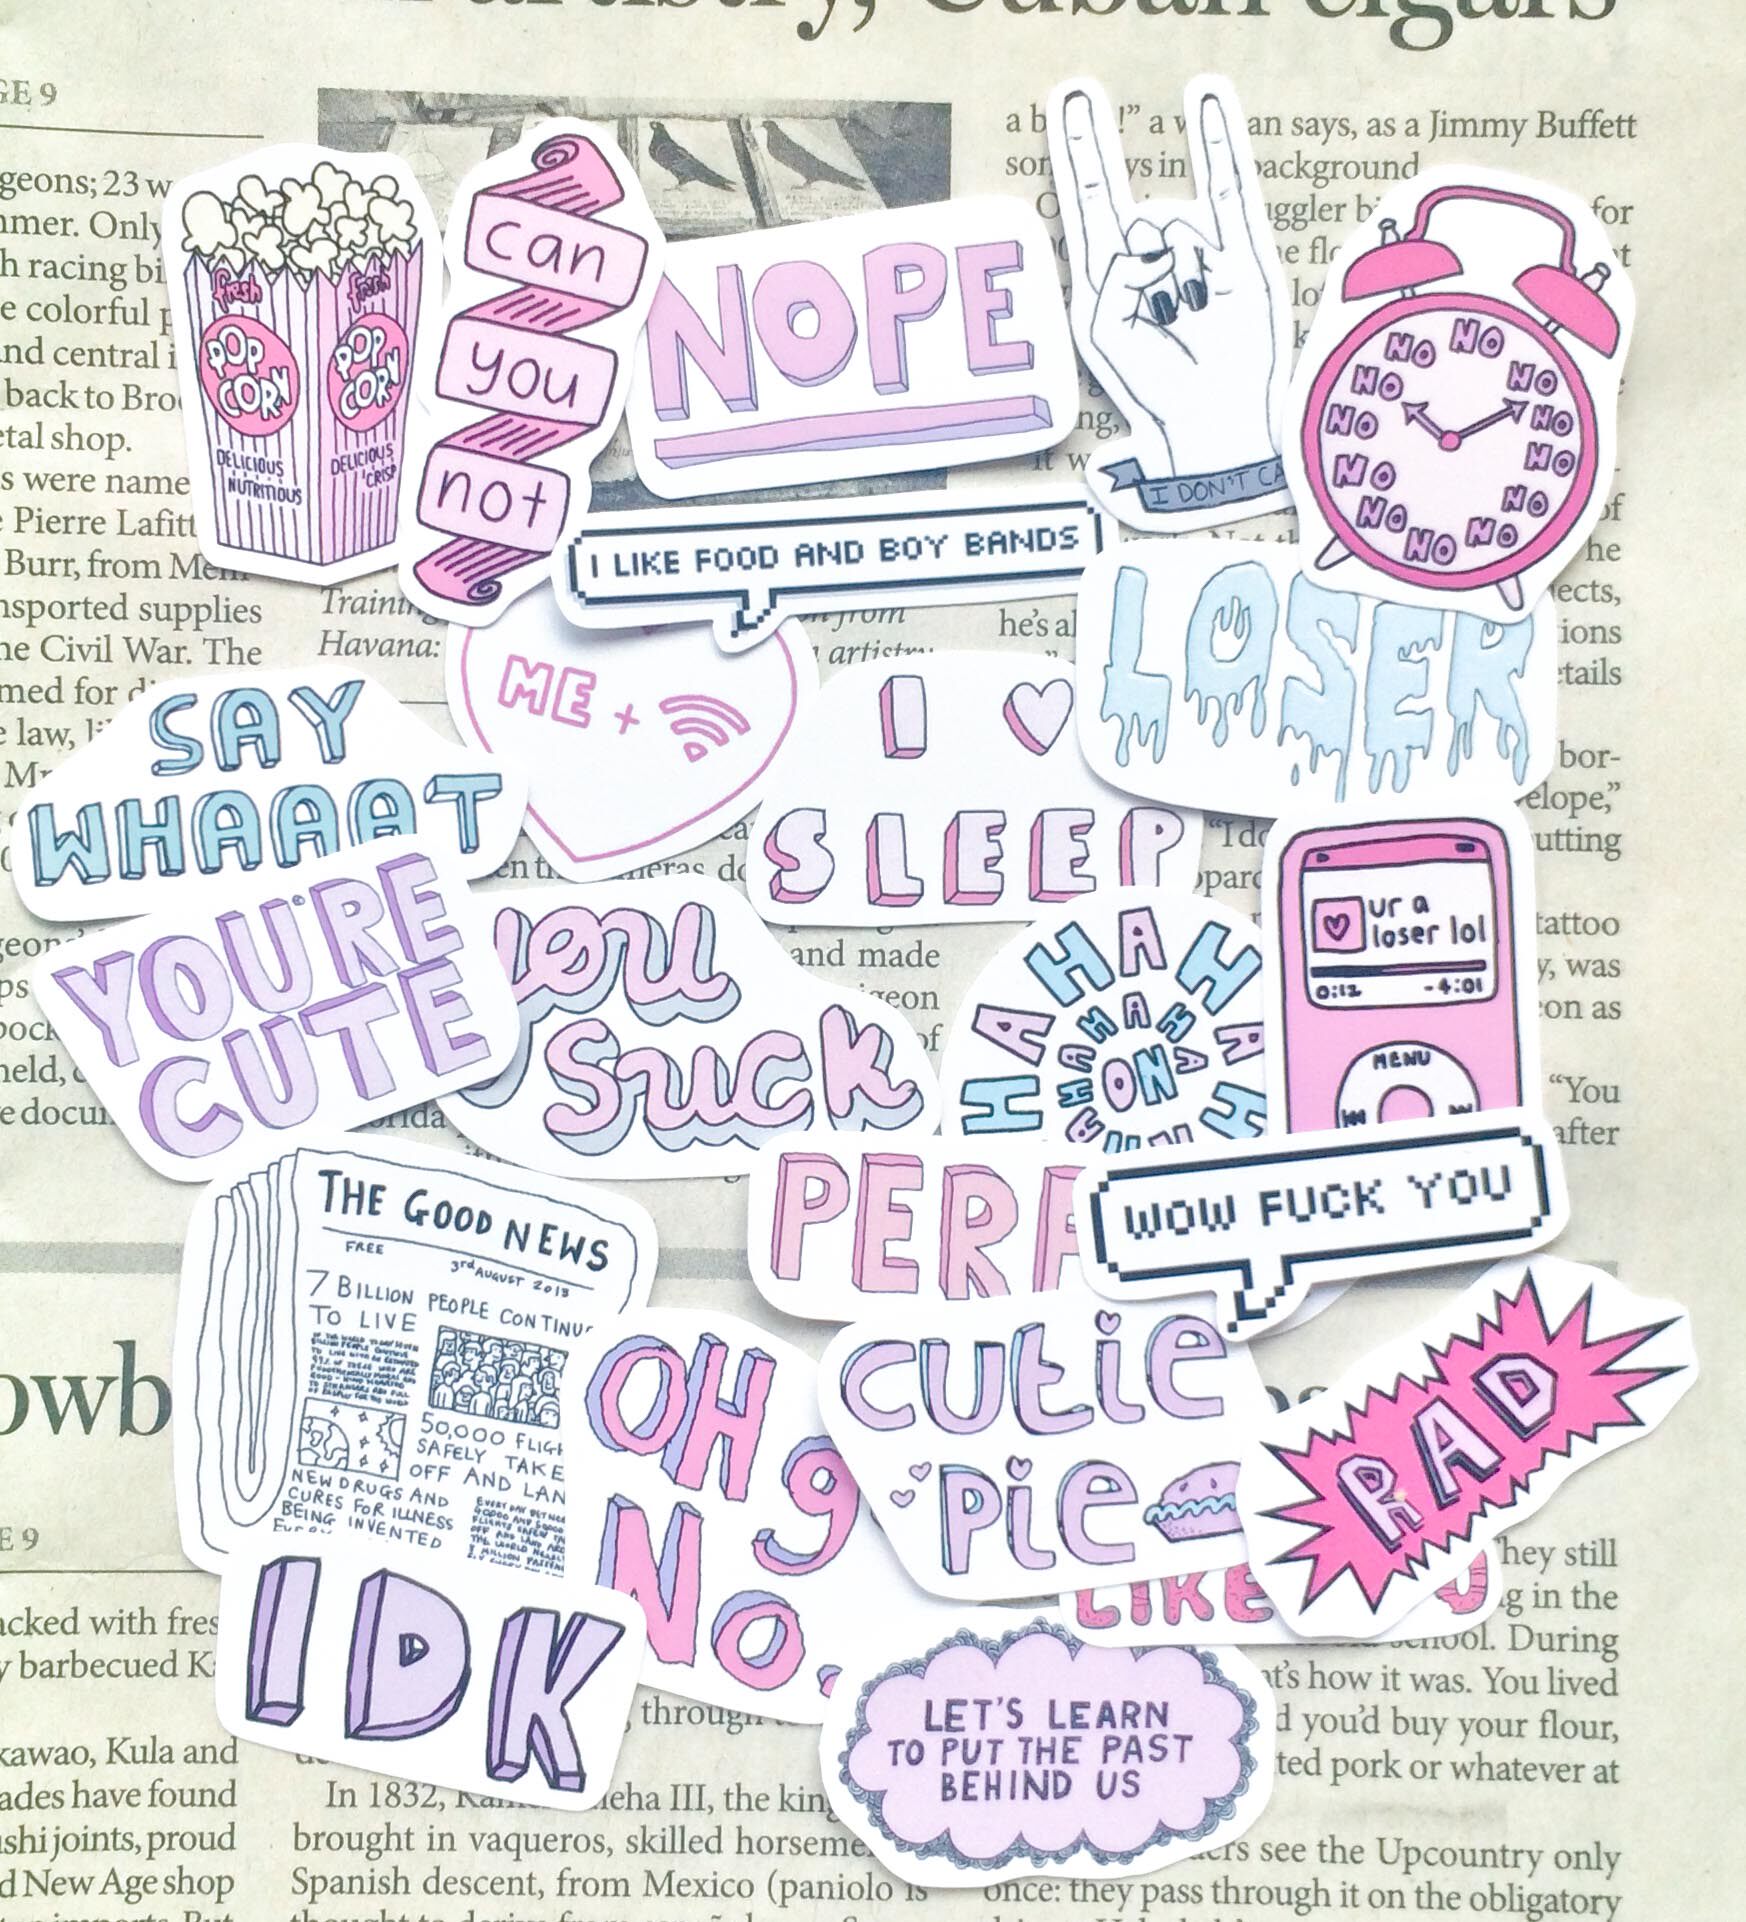 artistry, Cuban cigars
GE 9
geons; 23 w
mmer. Only
h racing bi
e colorful
nd central i
back to Bro
etal shop.
s were name
Pierre Lafitt
Burr, from Mem
nsported supplies
he Civil War. The
med for di
e law, li
a b !” a w an says, as a Jimmy Buffett
son ys in background
uggler bi for
Training
Havana:
from
artistry
he's al
fresh
fresh
POP
CORN
POP
CORN
DELICIOUS
NUTRITIOUS
DELICIOUS
'CRISP
can
you
not
NOPE
I DON'T CA
NO
NO
NO
NO
NO
NO
NO
NO
NO
NO
NO
NO
I LIKE FOOD AND BOY BANDS
LOSER
ME +
I ♥
SLEEP
SAY
WHAAAT
YOU'RE
CUTE
you
suck
HAHAHAHA
HAHAHAHA
ON
ur a
loser lol
0:12 -4:01
MENU
bor-
elope,”
utting
tattoo
y, was
eon as
“You
after
and made
geon
of
THE GOOD NEWS
FREE
3rd AUGUST 2013
7 BILLION PEOPLE CONTINUE
TO LIVE
50,000 FLIGH
SAFELY TAKE
OFF AND LAN
NEW DRUGS AND
CURES FOR ILLNESS
BEING INVENTED
PERF
WOW FUCK YOU
OH
NO.
cutie
pie
RAD
LIKE
IDK
LET'S LEARN
TO PUT THE PAST
BEHIND US
owb
E 9
acked with fres
y barbecued K
kawao, Kula and
ades have found
ushi joints, proud
d New Age shop
through
In 1832, Kam eha III, the king
brought in vaqueros, skilled horseme
Spanish descent, from Mexico (paniolo is
They still
g in the
school. During
at's how it was. You lived
d you'd buy your flour,
ted pork or whatever at
ers see the Upcountry only
once: they pass through it on the obligatory